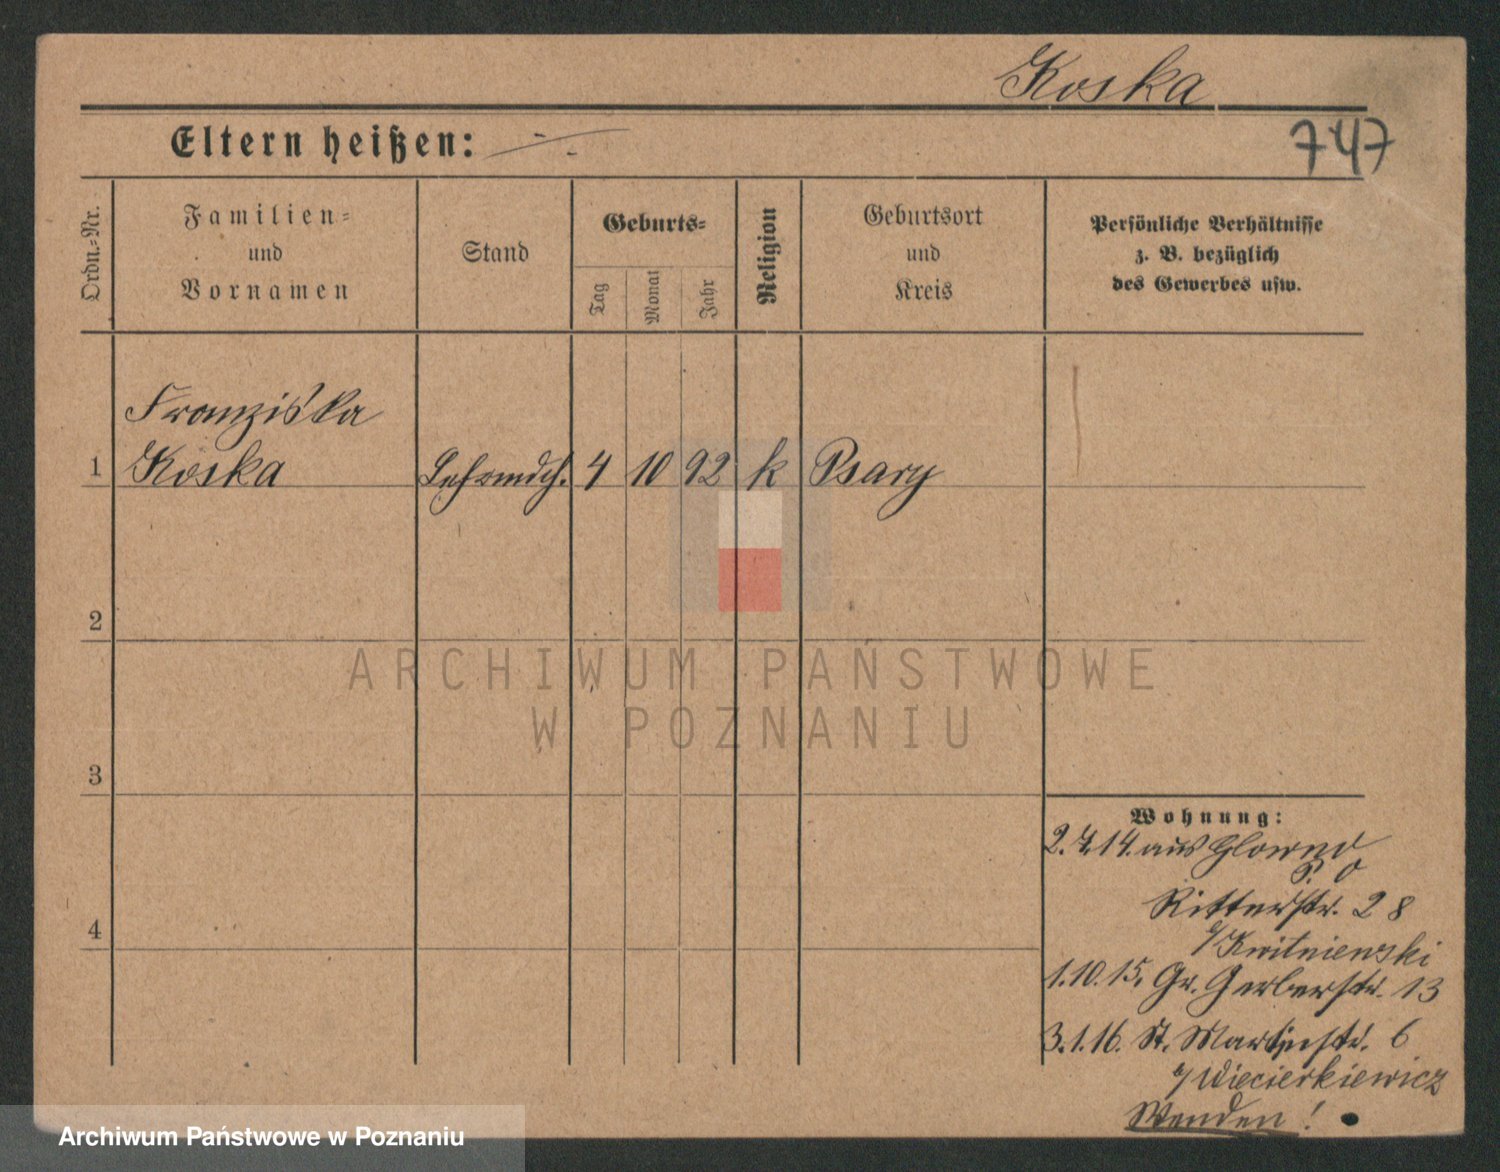 Koska
Eltern heißen: ./.
747
Ordn.=Nr.
Familien=
und
Vornamen
Stand
Geburts=
Tag
Monat
Jahr
Religion
Geburtsort
und
Kreis
Persönliche Verhältnisse
z. B. bezüglich
des Gewerbes usw.
Franziska
1 Koska Lehrmdch. 4 10 92 k Psary
2
ARCHIWUM PAŃSTWOWE
W POZNANIU
3
Wohnung:
2. 7. 14. aus Glowno
P. O
4
Ritterstr. 28
b/ Kwitniewski
1. 10. 15. Gr. Gerberstr. 13
3. 1. 16. St. Martinstr. 6
b/ Wiecierkiewicz
Wenden!
Archiwum Państwowe w Poznaniu